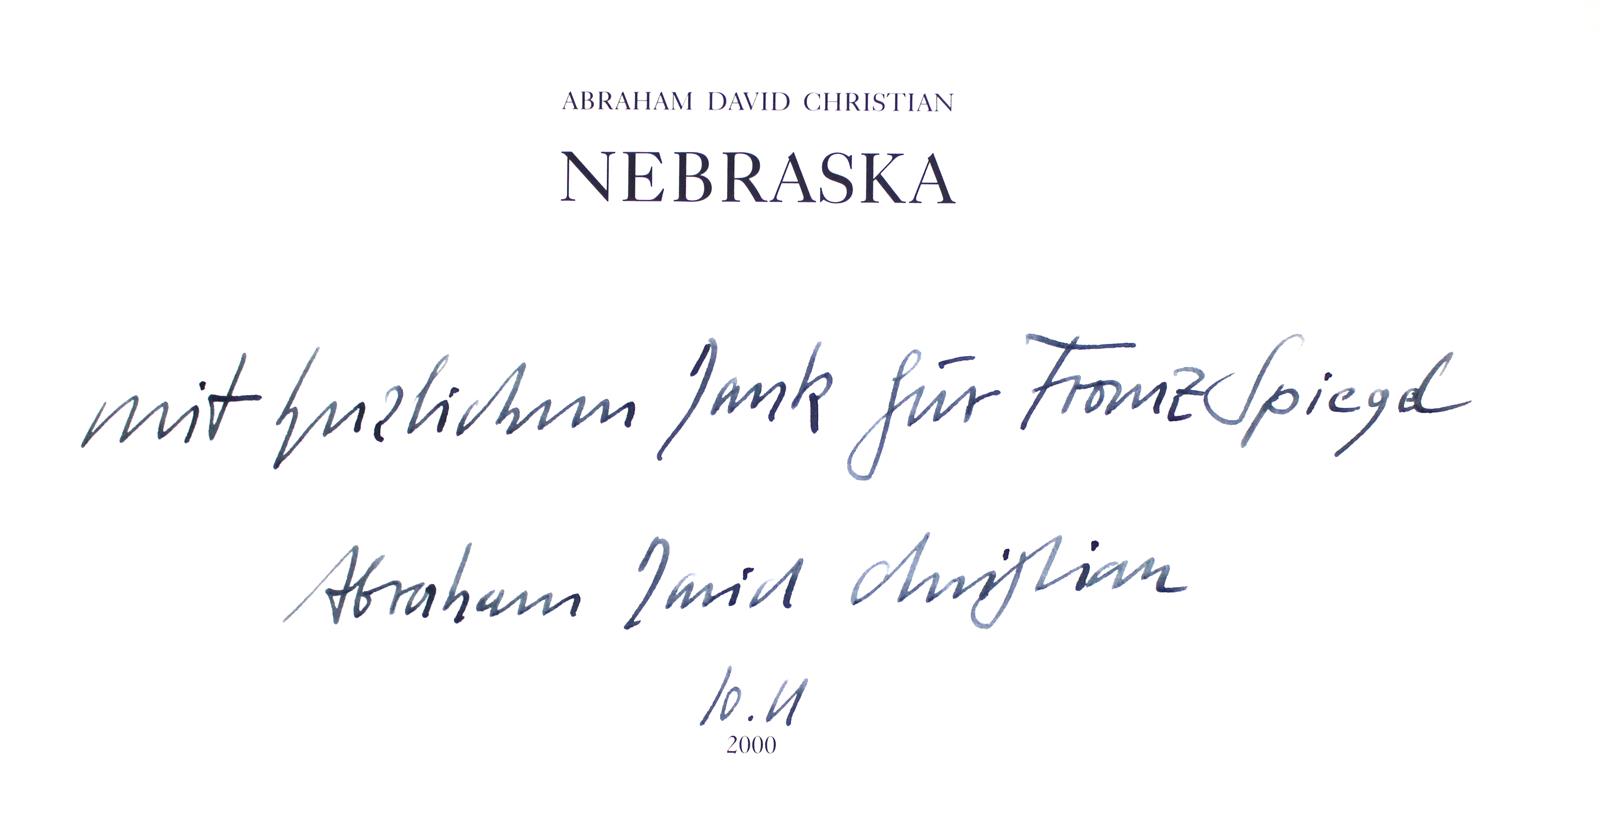 ABRAHAM DAVID CHRISTIAN
NEBRASKA
mit herzlichem Dank für Franz Spiegel
Abraham David Christian
10.11
2000